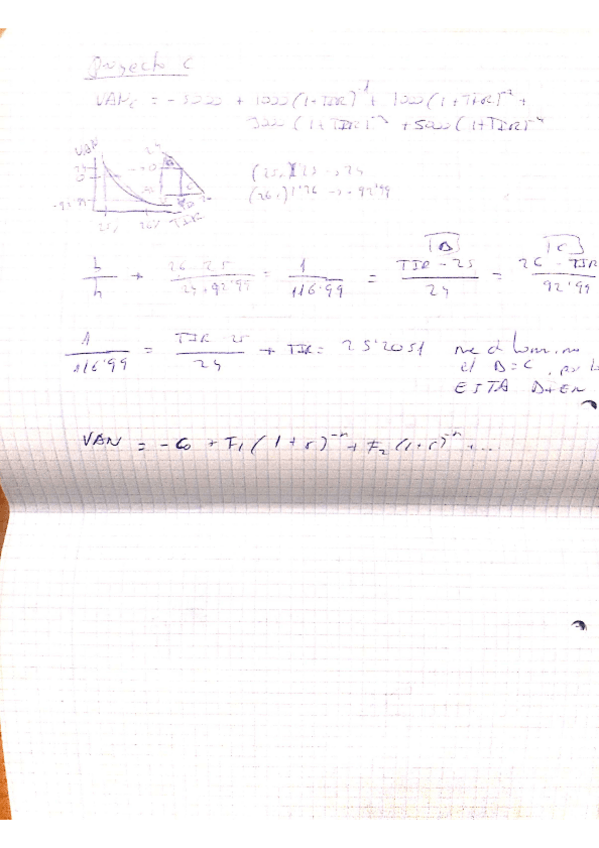 Proyecto C
VAN_C = -5000 + 1000 (1+TIR)^-1 + 1000 (1+TIR)^-2 +
3000 (1+TIR)^-3 + 5000 (1+TIR)^-4
VAN
24
24
0
-92'99
25% 26% TIR
(25%) 1'25 -> 24
(26%) 1'26 -> -92'99
b/h → 26-25/24+92'99 = 1/116'99 = TIR-25/24 = 26-TIR/92'99
B C
1/116'99 = TIR-25/24 → TIR = 25'2051
B=C
ESTA
VAN = -C0 + F1 (1+r)^-n + F2 (1+r)^-n + ...